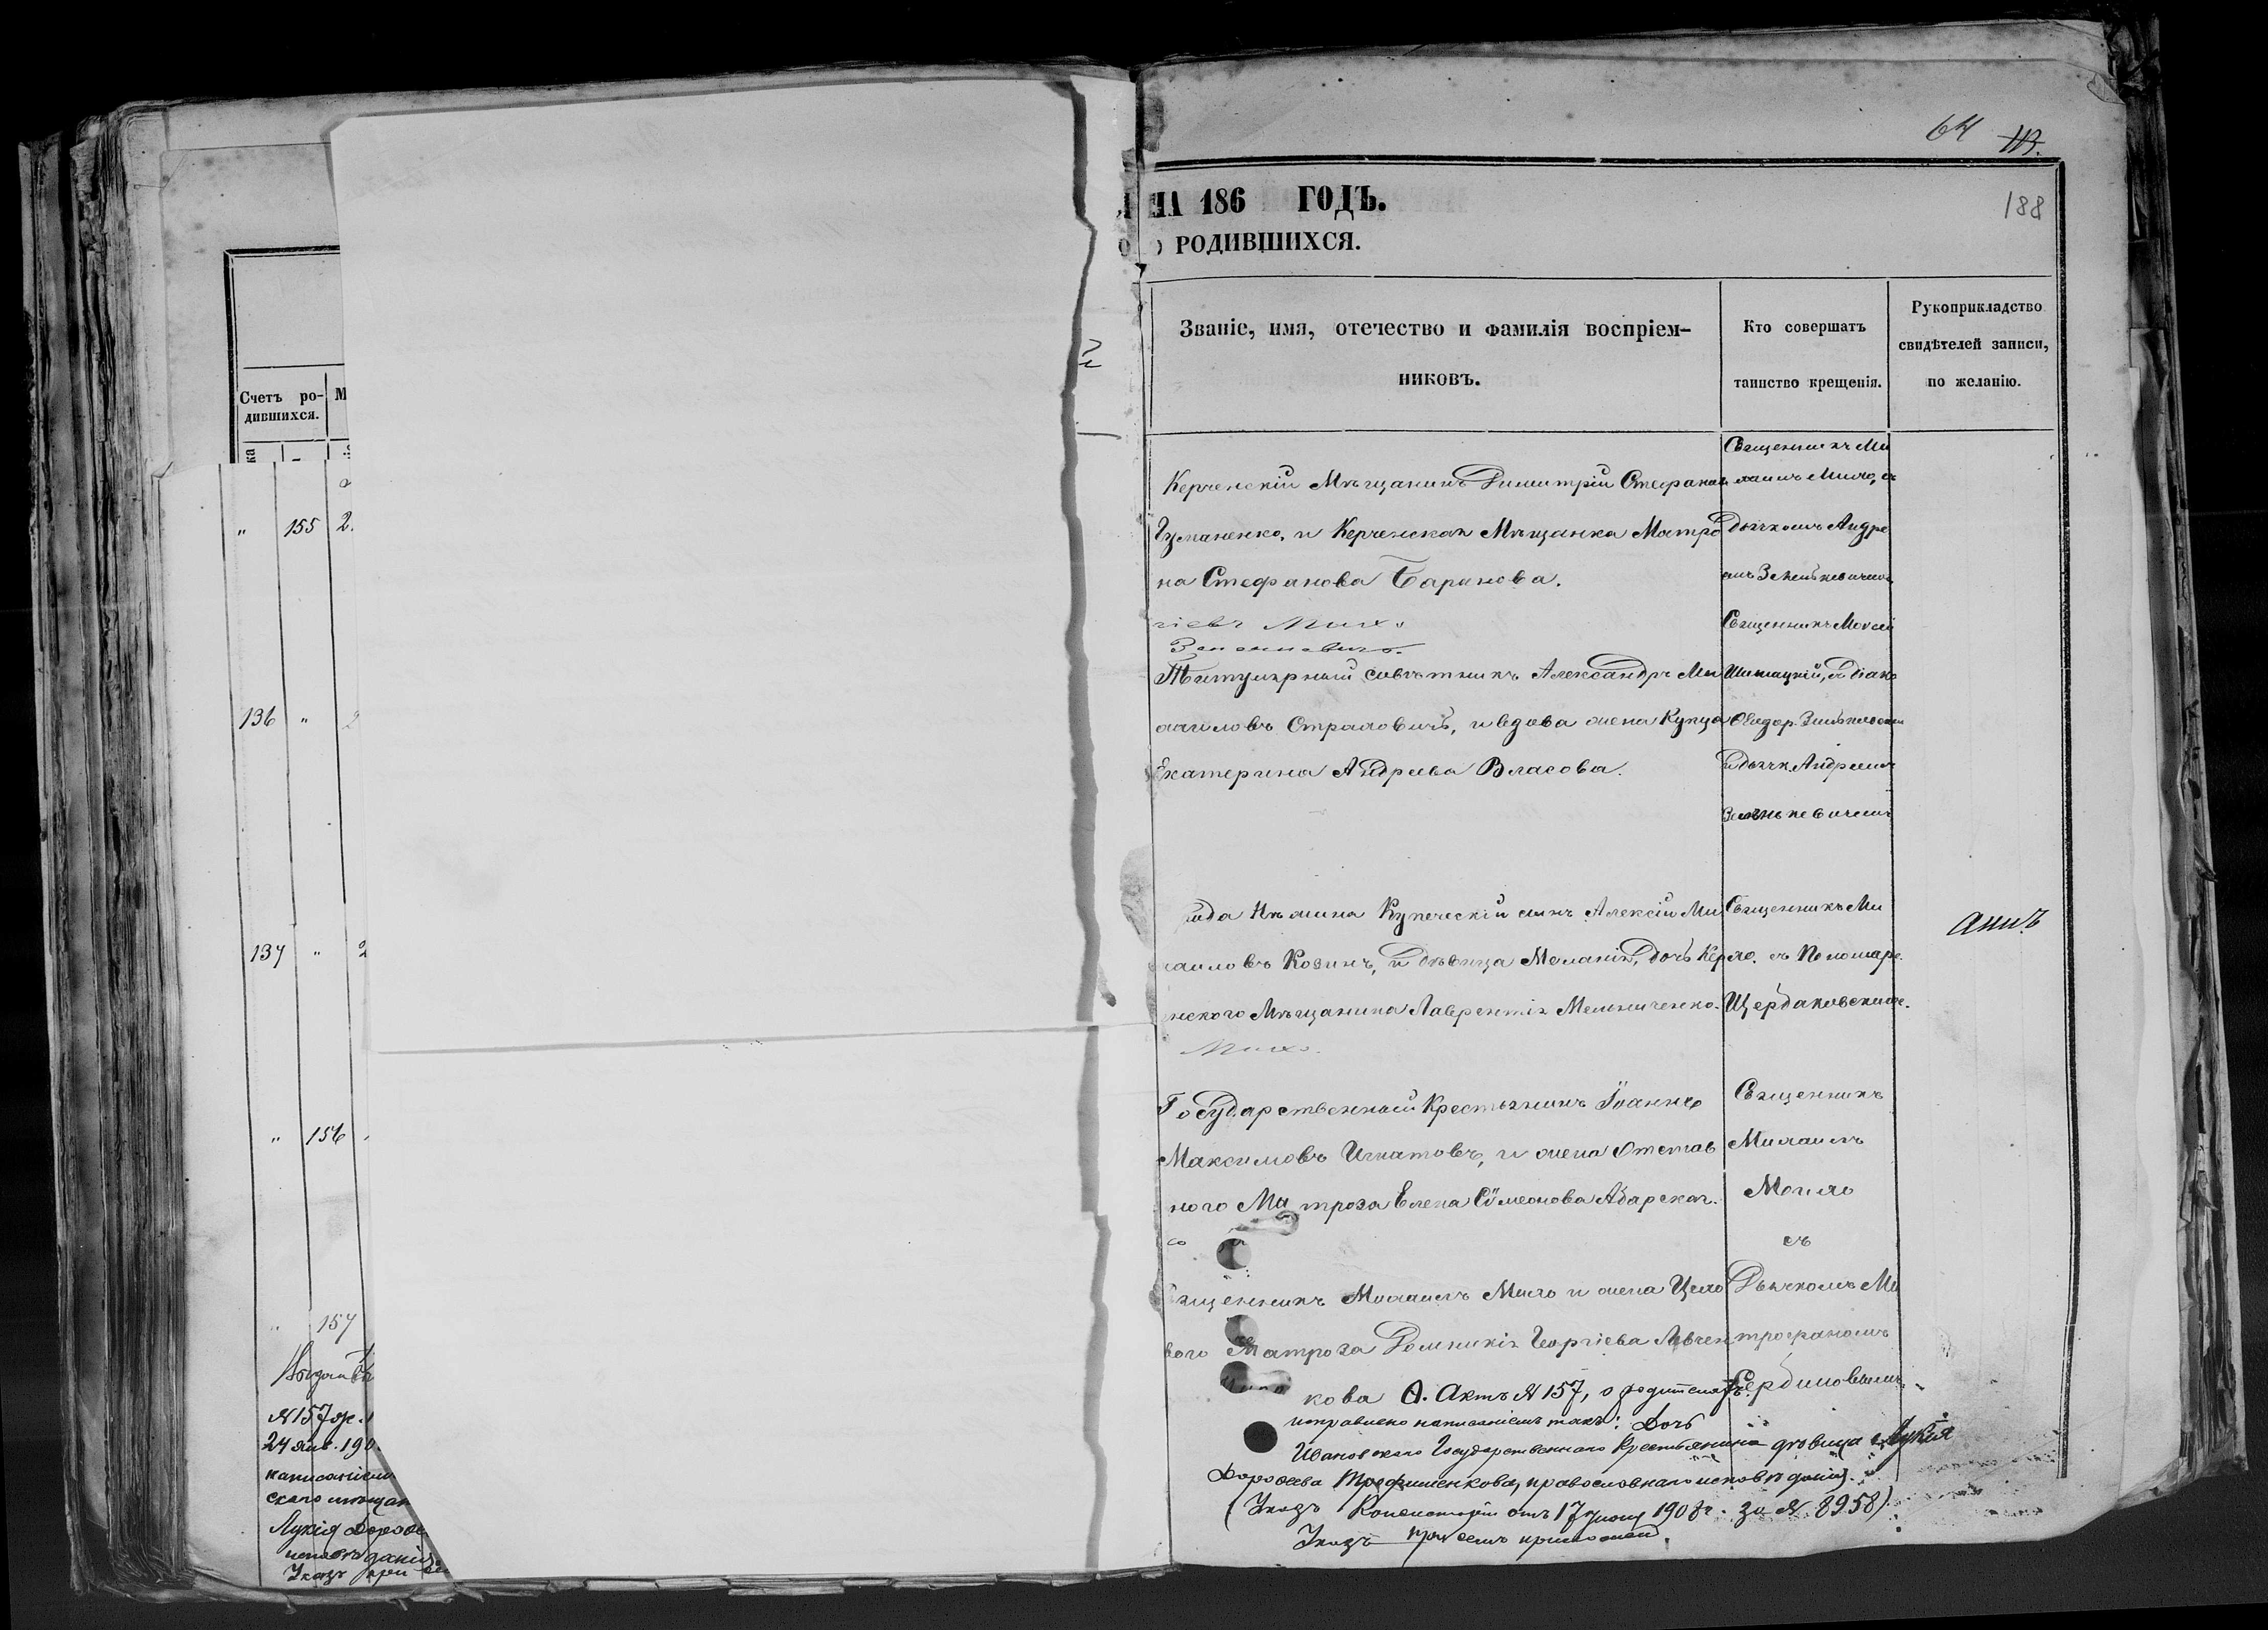 64 113.
188
НА 186 ГОДЪ.
О РОДИВШИХСЯ.
Счетъ ро-
дившихся.
М
Званіе, имя, отечество и фамилія воспріем-
никовъ.
Кто совершатъ
таинство крещенія.
Рукоприкладство
свидѣтелей записи,
по желанію.
" 155 2.
Керченскій Мѣщанинъ Димитрій Стефановъ
Гуманенко, и Керченская Мѣщанка Матро
на Стефанова Баринова.
Священникъ Ми
хаилъ Мило, съ
Дьячкомъ Андре
емъ Зенькевичемъ
136 " 2
Титулярный совѣтникъ Александръ Ми
хаиловъ Страховичъ, и вдова жена Купца
Екатерина Андреева Власова.
Священникъ Моисей
Шишацкій, съ Діако
Ѳеодор.
и дьячк. Андреемъ
Зенькевичемъ
137 " 2
рода Нѣжина Купеческій сынъ Алексій Ми
хаиловъ Козинъ, и дѣвица Меланія, дочь Кер
ченскаго Мѣщанина Лаврентія Мельниченко.
Священникъ Ми
ло. съ Пономаре.
Щердаковскимъ.
анинъ
" 156
Государственный Крестьянинъ Іоаннъ
Максимовъ Игнатовъ, и жена Отстав
ного Матроза Елена Симеонова Абарская.
Священникъ
Михаилъ
Мочило
съ
157
Священникъ Михаилъ Мило и жена Цело
вого Матроза Домникія Георгіева Левчен
кова
Дьячкомъ Ми
трофаномъ
Сердиновымъ.
Ѳ. Актъ № 157, о родителяхъ
исправлено написаніемъ такъ: Дочь
Ивановскаго Государственнаго Крестьянина дѣвица Лукія
Дорофеева Трофименкова, православнаго исповѣданія.
(Указъ Консисторіи отъ 17 іюня 1908 г. за № 8958).
Указъ при семъ приложенъ.
№ 157 ж.
24 янв. 190
написаніемъ
скаго мѣщан
Лукія Дорофе
исповѣданія.
Указъ при се